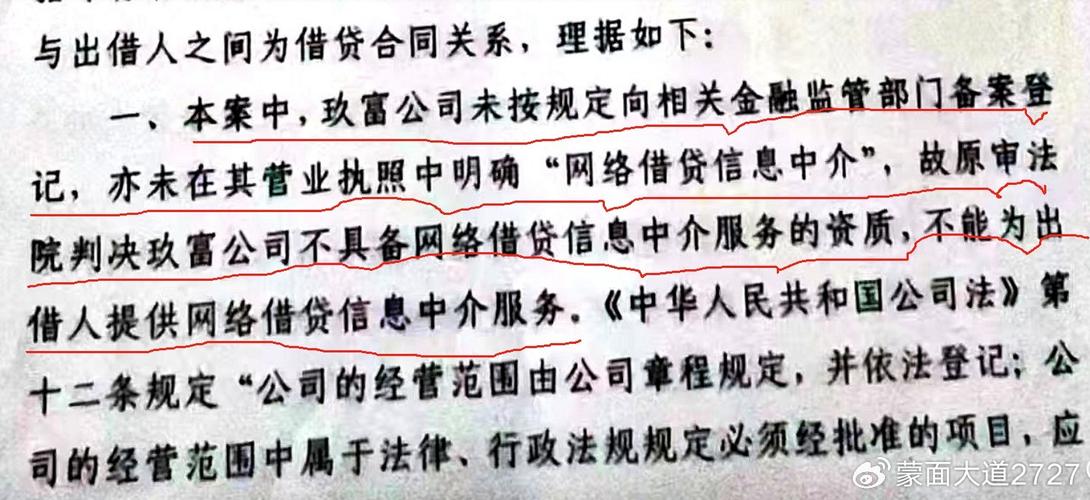 与出借人之间为借贷合同关系，理据如下：
一、本案中，玖富公司未按规定向相关金融监管部门备案登
记，亦未在其营业执照中明确“网络借贷信息中介”，故原审法
院判决玖富公司不具备网络借贷信息中介服务的资质，不能为出
借人提供网络借贷信息中介服务。《中华人民共和国公司法》第
十二条规定“公司的经营范围由公司章程规定，并依法登记；公
司的经营范围中属于法律、行政法规规定必须经批准的项目，应
蒙面大道2727